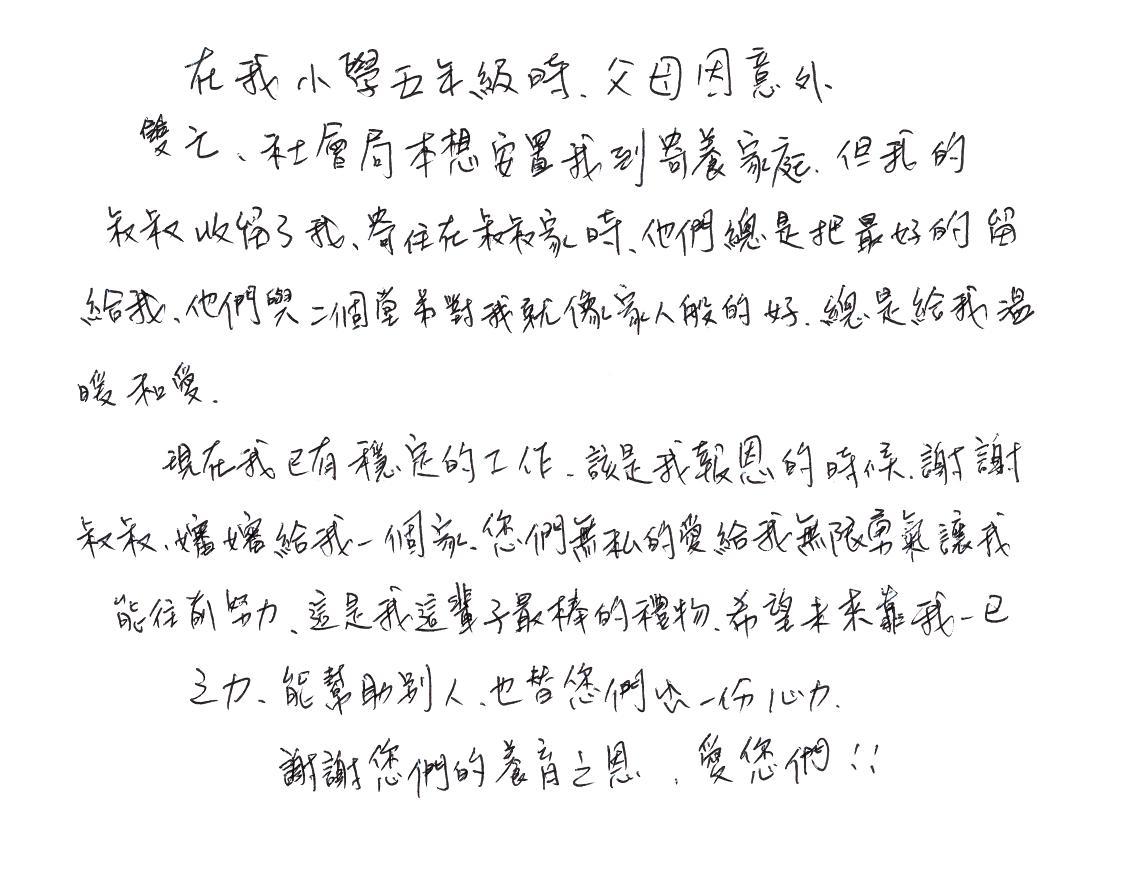 在我小學五年級時、父母因意外
雙亡、社會局本想安置我到寄養家庭、但我的
叔叔收留了我、寄住在叔叔家時、他們總是把最好的留
給我、他們與二個堂弟對我就像家人般的好、總是給我溫
暖和愛.
現在我已有穩定的工作、該是我報恩的時候、謝謝
叔叔、嬸嬸給我一個家、您們無私的愛給我無限勇氣讓我
能往前努力、這是我這輩子最棒的禮物、希望未來靠我一己
之力、能幫助別人、也替您們出一份心力.
謝謝您們的養育之恩、愛您們!!